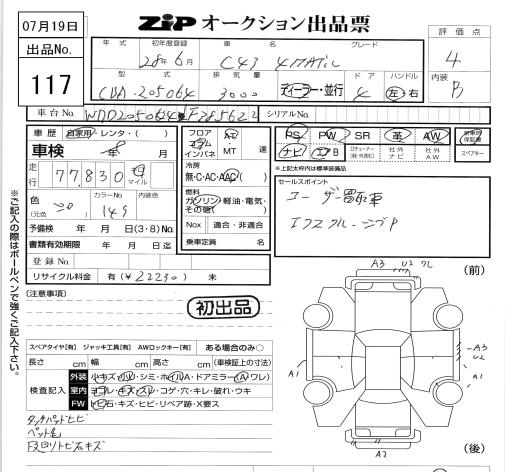 07月19日
ZiP オークション出品票
出品No.
117
年式 初年度登録 車名 グレード
28年6月 C43 4MATIC
型式 排気量 ドア ハンドル
CBA-205064 3000 ディーラー・並行 4 左・右
評価点
4
内装
B
車台No. WDD2050642F285622
シリアルNo.
車歴 自家用・レンタ・( )
車検 年 8月
走行 77,830 km マイル
色 (元色) カラーNo. 149 内装色
予備検 年 月 日(3・8)No.
書類有効期限 年 月 日迄
登録No.
リサイクル料金 有(¥22230) 未
フロア コラム インパネ AT・MT 速
冷房
無・C・AC・AAC( )
燃料
ガソリン・軽油・電気・その他( )
Nox 適合・非適合
乗車定員 名
PS PW SR 革 AW 新車時保証書
ナビ エアB ロクチューナー(純・外含む) 社外ナビ 社外AW スペアキー
※上記太枠内は標準装備品
セールスポイント
ユーザー買取車
エクスクルーシブP
※ご記入の際はボールペンで強くご記入下さい。
[注意事項]
初出品
A3 U2 (前)
A3
U2
A1
A1
A2
(後)
スペアタイヤ[有] ジャッキ工具[有] AWロックキー[有] ある場合のみ○
長さ cm 幅 cm 高さ cm (車検証上の寸法)
検査記入 外装 小キズ・小凹・シミ・ホイルA・ドアミラー(A・ワレ)
室内 ヨゴレ・キズ・スレ・コゲ・穴・キレ・破れ・ウキ
FW トビ石・キズ・ヒビ・リペア跡・X要ス
タッチパッドヒビ
ペット毛
Fスロリトビ石キズ